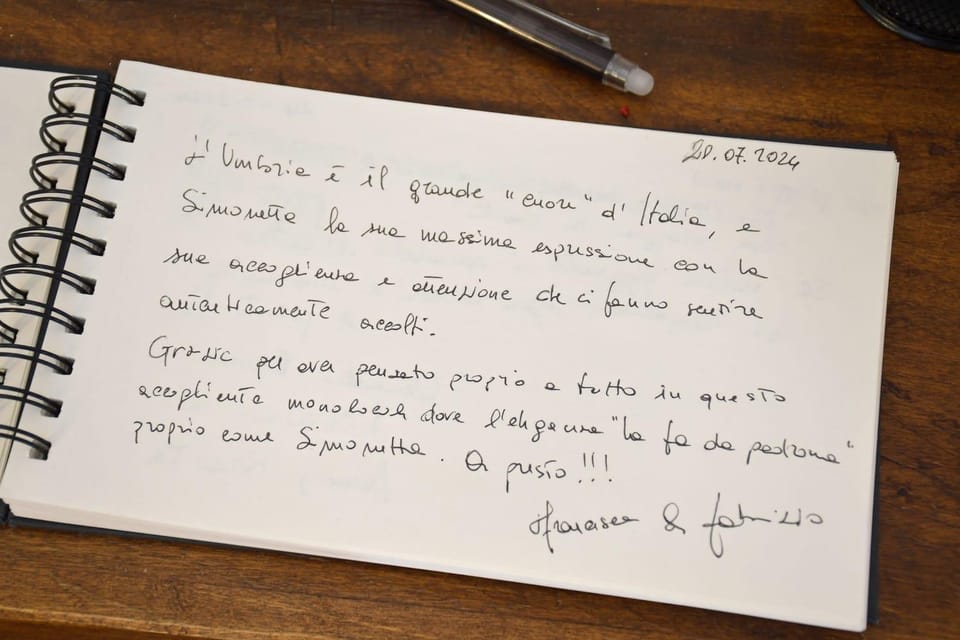 20.07.2024
L'Umbria è il grande "cuore" d'Italia, e
Simonetta la sua massima espressione con la
sua accoglienza e attenzione che ci fanno sentire
autenticamente accolti.
Grazie per aver pensato proprio a tutto in questo
accogliente monolocale dove l'eleganza "la fa da padrona"
proprio come Simonetta. A presto!!!
Francesca & Fabrizio